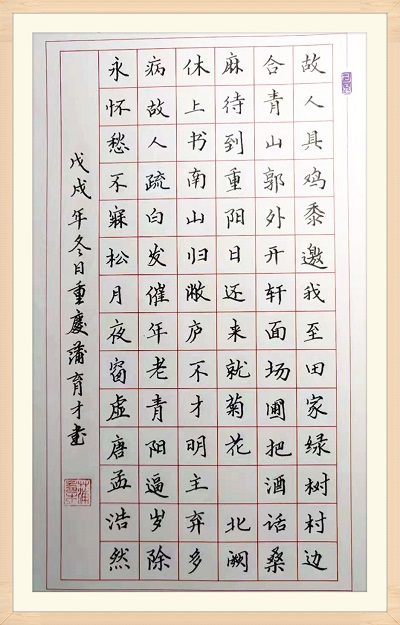 故人具鸡黍邀我至田家绿树村边
合青山郭外开轩面场圃把酒话桑
麻待到重阳日还来就菊花 北阙
休上书南山归敝庐不才明主弃多
病故人疏白发催年老青阳逼岁除
永怀愁不寐松月夜窗虚唐孟浩然
戊戌年冬日重慶蒲育才書